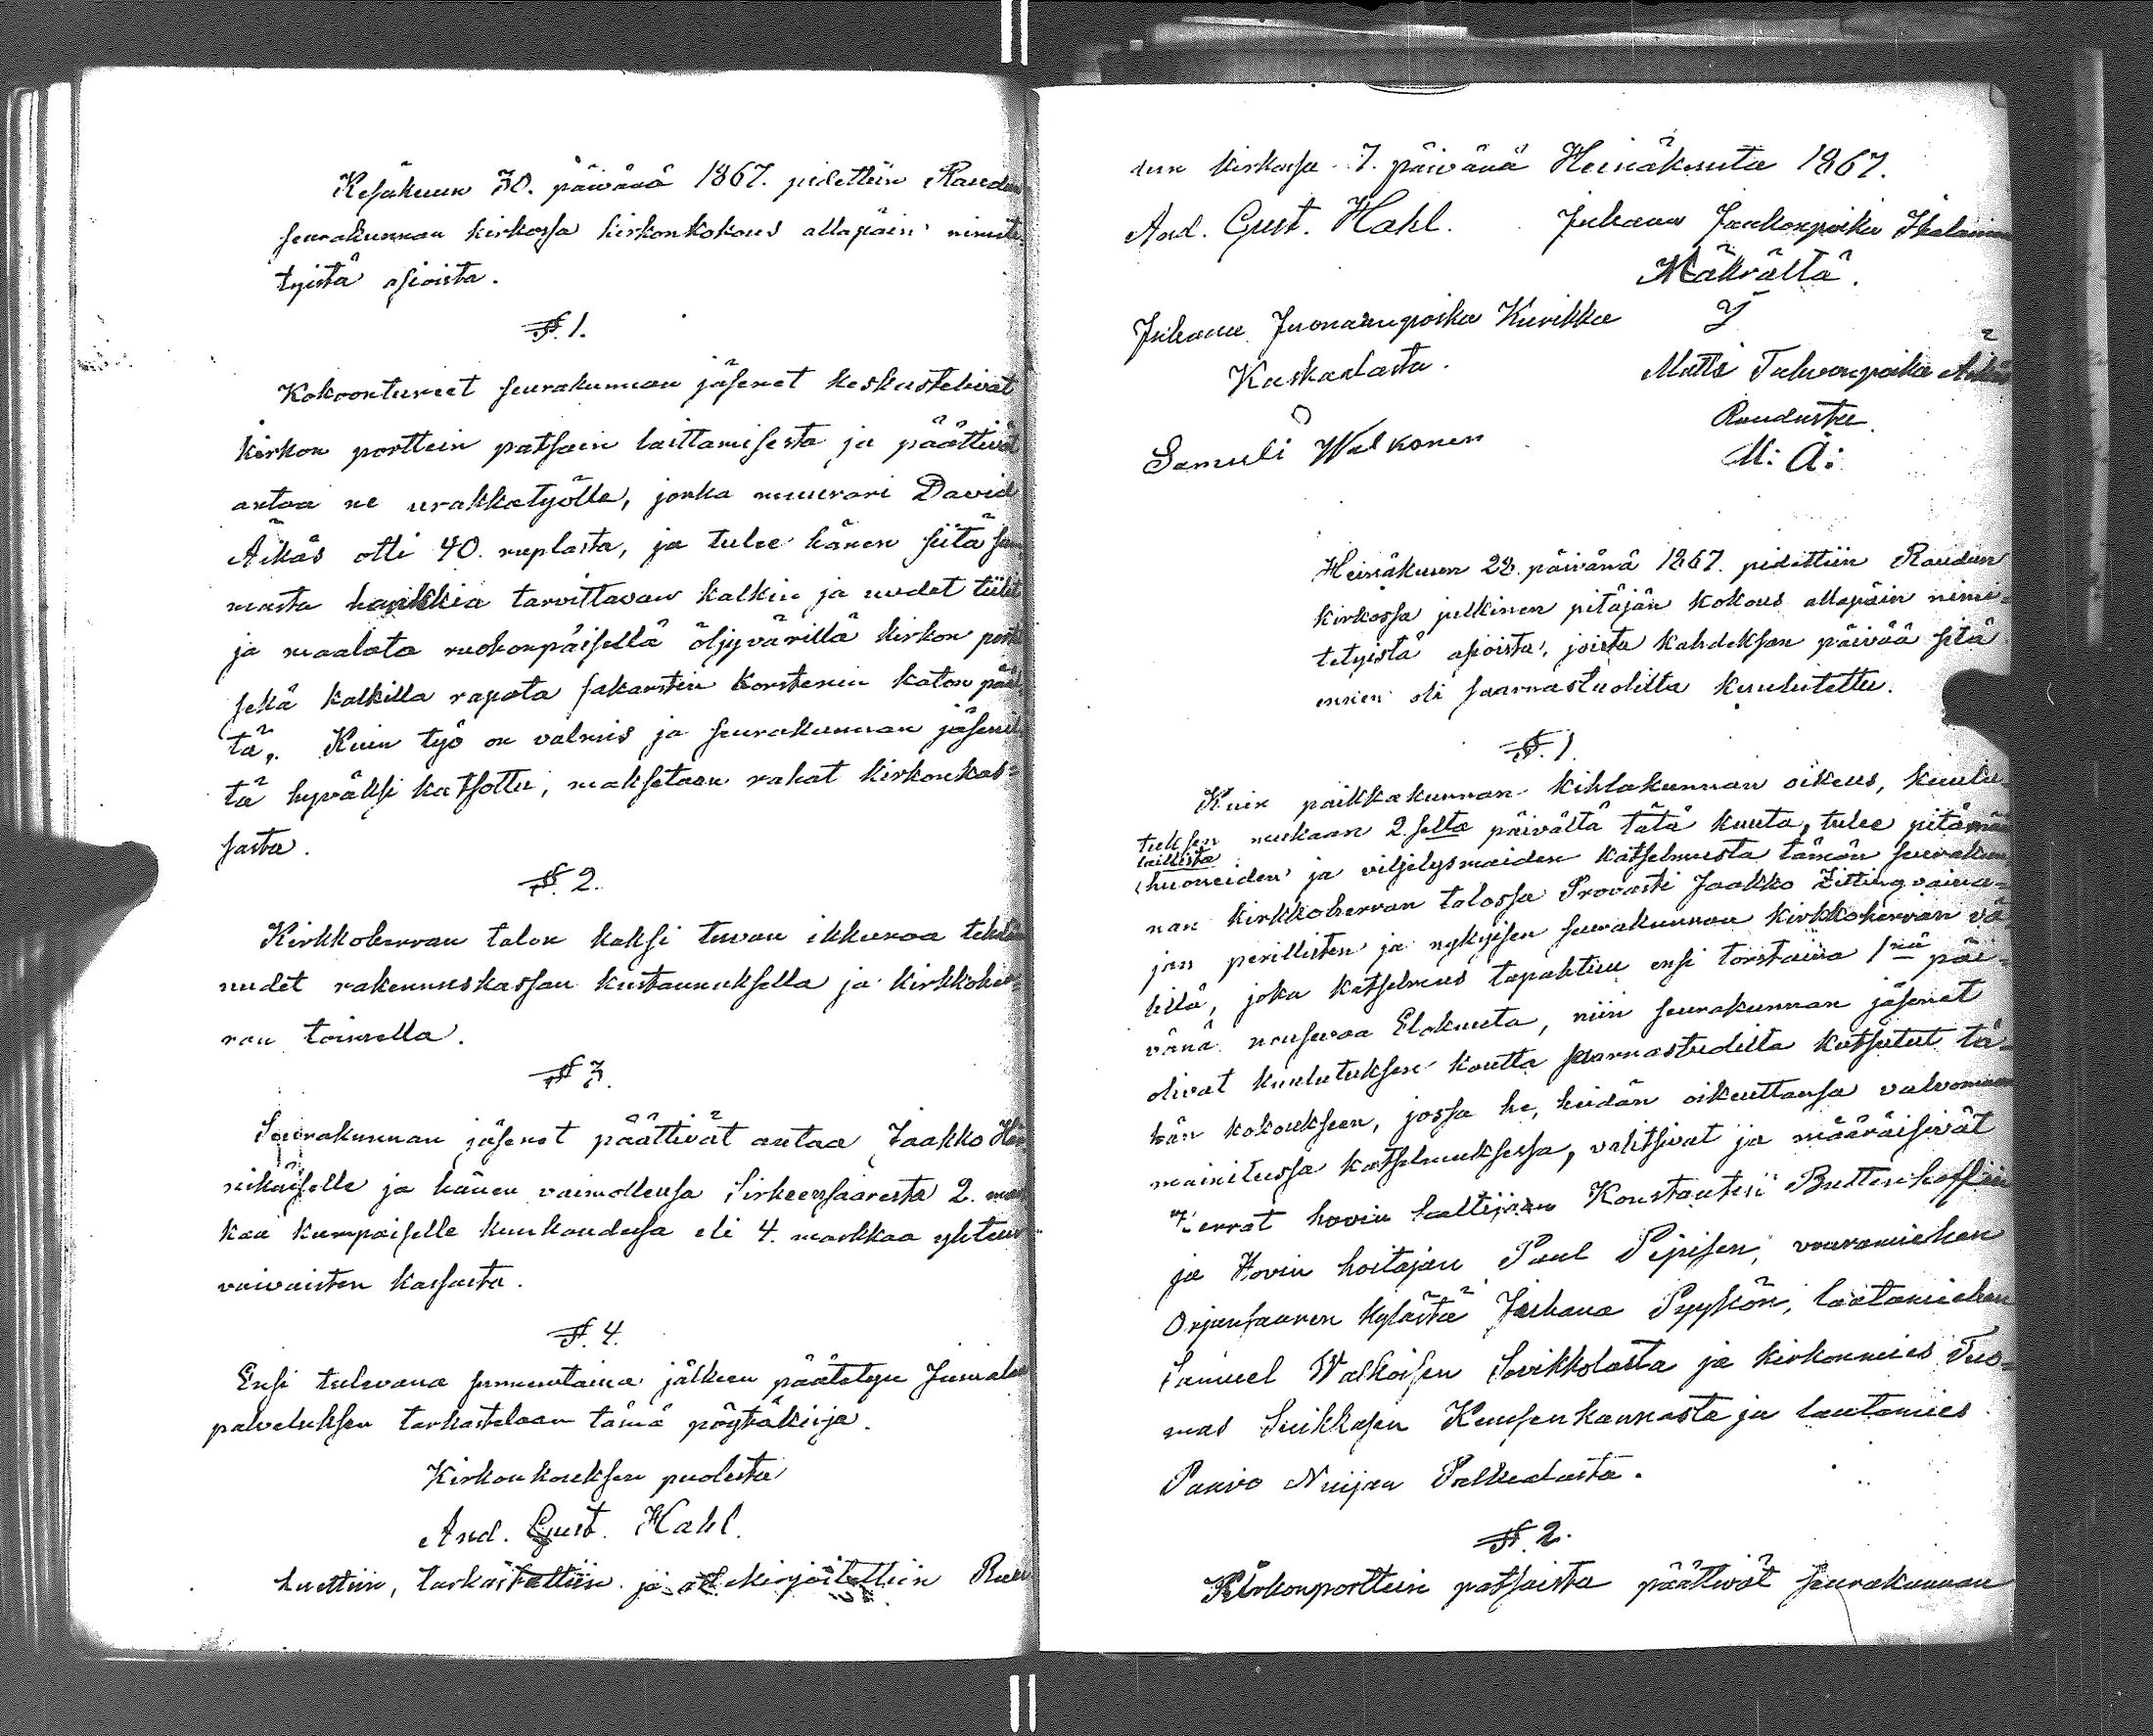 Kesäkuun 30. päivänä 1867. pidettiin Raudun
seurakunnan kirkossa kirkonkokous allapäin nimite-
tyistä asioista.
§. 1.
Kokoontuneet seurakunnan jäsenet keskustelivat
kirkon porttein patsain laittamisesta ja päättivät
antaa ne urakkatyölle, jonka muurari David
Äikäs otti 40. ruplasta, ja tulee hänen siitä sum
masta hankkia tarvittavan kalkin ja uudet tiilit
ja maalata ruohonpäisellä öljyvärillä kirkon portit
sekä kalkilla rapata sakarstin korstenin katon pääl
tä. Kuin työ on valmis ja seurakunnan jäsenil
tä hyväksi katsottu, maksetaan rahat kirkonkas-
sasta.
§. 2.
Kirkkoherran talon kaksi tuvan ikkunaa tehdään
uudet rakennuskassan kustannuksella ja kirkkoher-
ran toimella.
§ 3.
Seurakunnan jäsenet päättivät antaa Jaakko
ja hänen vaimollensa Sirkeensaaresta 2. mark
kaa kumpaiselle kuukaudessa eli 4. markkaa yhteen
vaivaisten kassasta.
§. 4.
Ensi tulevana sunnuntaina jälkeen päätetyn Jumalan
palveluksen tarkastelaan tämä pöytäkirja.
Kirkonkouksen puolesta
And. Gust. Hahl.
luettiin, tarkastettiin ja allekirjoitettiin Rau
dun kirkossa 7. päivänä Heinäkuuta 1867.
And. Gust. Hahl. Juhana Jaakonpoika Ikalainen
Mäkrältä.
Juhana Juonaanpoika Kurikka
Kaskaalasta.
Matti Tahvonpoika Äikäs
Raudusta.
Samuli Walkonen
M: Ä:
Heinäkuun 28. päivänä 1867. pidettiin Raudun
kirkossa julkinen pitäjän kokous allapäin nimi-
tetyistä asioista, joista kahdeksan päivää sitä
ennen oli saarnastuolilta kuulutettu.
§. 1.
Kuin paikkakunnan kihlakunnan oikeus, kuulu-
tuksen mukaan 2.selta päivältä tätä kuuta, tulee pitämän
laillista
huoneiden ja viljelysmaiden katselmusta tämän seurakun
nan kirkkoherran talossa Provasti Jaakko Zitting vaina-
jan perillisten ja nykyisen seurakunnan kirkkoherran vä-
lillä, joka katselmus tapahtuu ensi torstaina 1nä päi-
vänä nousevaa Elokuuta, niin seurakunnan jäsenet
olivat kuulutuksen koutta saarnastuolilta kutsutut tä-
hän kokoukseen, jossa he, heidän oikeuttansa valvomaan
mainitussa katselmuksessa, valitsivat ja määräisivät
Herrat hovin haltijan Konstantin
ja Hovin hoitajan Paul Pipisen, vuaramiehen
Orjansaaren kylästä Juhana Pyykön, lautamiehen
Samuel Walkoisen Sovikkolasta ja kirkonmies Tuo-
mas Suikkasen Keusenkannasta ja lautamies
Paavo Nuijan Palkealasta.
§. 2.
Kirkonporttein patsaista päättivät seurakunnan